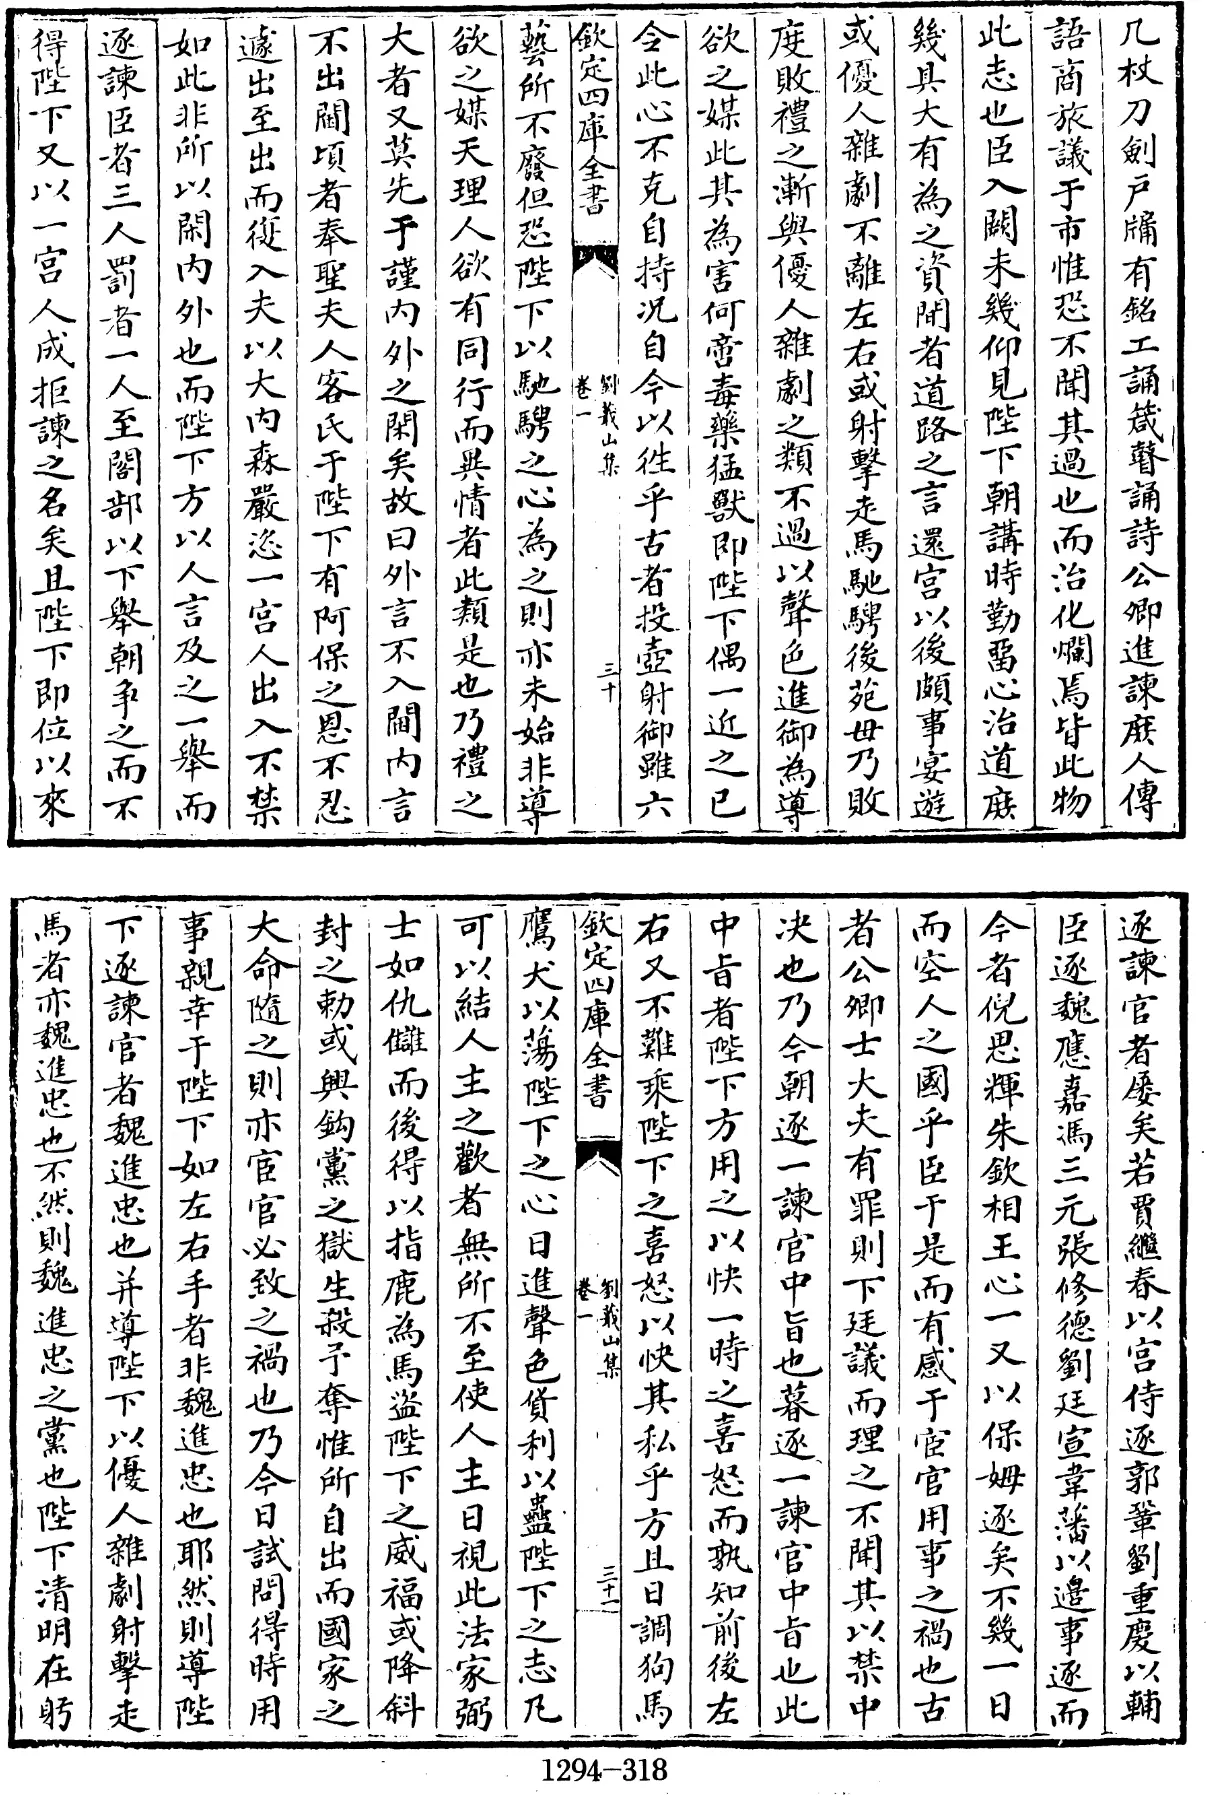 几杖刀劍戸牖有銘工誦箴瞽誦詩公卿進諫庶人傳
語商旅議于市惟恐不聞其過也而治化爛焉皆此物
此志也臣入闕未幾仰見陛下朝講時勤留心治道庶
幾具大有為之資間者道路之言還宫以後頗事宴遊
或優人雜劇不離左右或射擊走馬馳騁後苑毋乃敗
度敗禮之漸與優人雜劇之類不過以聲色進御為導
欲之媒此其為害何啻毒藥猛獸即陛下偶一近之已
令此心不克自持况自今以徃乎古者投壺射御雖六
欽定四庫全書
劉蕺山集
卷一
三十
藝所不廢但恐陛下以馳騁之心為之則亦未始非導
欲之媒天理人欲有同行而異情者此類是也乃禮之
大者又莫先于謹内外之閑矣故曰外言不入閫内言
不出閫頃者奉聖夫人客氏于陛下有阿保之恩不忍
遽出至出而復入夫以大内森嚴恣一宫人出入不禁
如此非所以閑内外也而陛下方以人言及之一舉而
逐諫臣者三人罰者一人至閣部以下舉朝争之而不
得陛下又以一宫人成拒諫之名矣且陛下即位以來
逐諫官者屡矣若賈繼春以宫侍逐郭鞏劉重慶以輔
臣逐魏應嘉馮三元張修德劉廷宣韋藩以邊事逐而
今者倪思輝朱欽相王心一又以保姆逐矣不幾一日
而空人之國乎臣于是而有感于宦官用事之禍也古
者公卿士大夫有罪則下廷議而理之不聞其以禁中
决也乃今朝逐一諫官中旨也暮逐一諫官中旨也此
中旨者陛下方用之以快一時之喜怒而孰知前後左
右又不難乘陛下之喜怒以快其私乎方且日調狗馬
欽定四庫全書
劉蕺山集
卷一
三十一
鷹犬以蕩陛下之心日進聲色貨利以蠱陛下之志凡
可以結人主之歡者無所不至使人主日視此法家弼
士如仇讎而後得以指鹿為馬盗陛下之威福或降斜
封之勅或興鈎黨之獄生殺予奪惟所自出而國家之
大命隨之則亦宦官必致之禍也乃今日試問得時用
事親幸于陛下如左右手者非魏進忠也耶然則導陛
下逐諫官者魏進忠也并導陛下以優人雜劇射擊走
馬者亦魏進忠也不然則魏進忠之黨也陛下清明在躬
1294-318